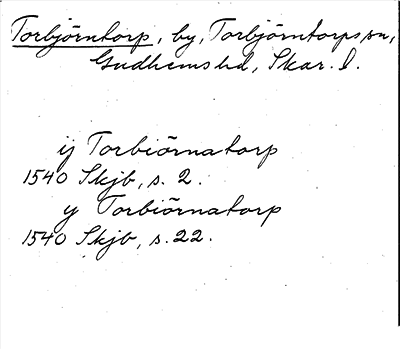 Torbjörntorp, by, Torbjörntorps sn,
Gudhems hd, Skar. l.
ij Torbiörnatorp
1540 Skjb, s. 2.
ij Torbiörnatorp
1540 Skjb, s. 22.